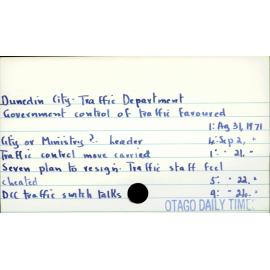 Dunedin City - Traffic Department
Government control of traffic favoured
1: Aug 31, 1971
City or Ministry ?. Leader 4: Sep 2, "
Traffic control move carried 1: " 21, "
Seven plan to resign. Traffic staff feel
cheated 5: " 22, "
DCC traffic switch talks 9: " 24, "
OTAGO DAILY TIMES